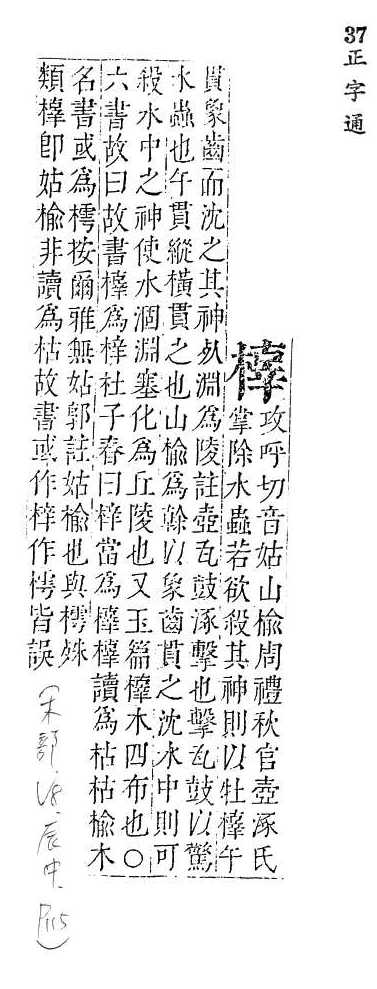 37 正字通
橭
攻呼切音姑山榆周禮秋官壺涿氏
掌除水蟲若欲殺其神則以牡橭午
貫象齒而沈之其神死淵爲陵註壺瓦鼓涿擊也擊瓦鼓以驚
水蟲也午貫縱橫貫之也山榆爲榦以象齒貫之沈水中則可
殺水中之神使水涸淵塞化爲丘陵也又玉篇橭木四布也○
六書故曰故書橭爲梓杜子春曰梓當爲橭橭讀爲枯枯榆木
名書或爲樗按爾雅無姑郭註姑榆也與樗殊
類橭卽姑榆非讀爲枯故書或作梓作樗皆誤
(木部.18.辰中.P115)